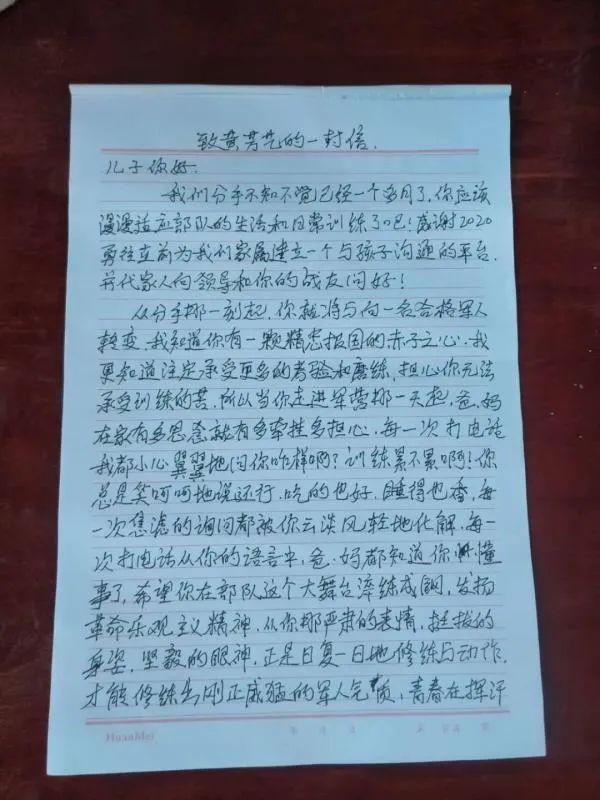 致黄芳艺的一封信.
儿子你好.
我们分手不知不觉已经一个多月了,你应该
漫漫适应部队的生活和日常训练了吧!感谢2020
勇往立前为我们家属建立一个与孩子沟通的平台.
并代家人向领导和你的战友问好!
从分手那一刻起,你就将与向一名合格军人
转变.我知道你有一颗精忠报国的赤子之心.我
更知道注定承受更多的考验和磨练,担心你无法
承受训练的苦.所以当你走进军营那一天起,爸.妈
在家有多思念就有多牵挂多担心,每一次打电话
我都小心翼翼地问你咋样啊?训练累不累啊!你
总是笑呵呵地说还行.吃的也好.睡得也香,每
一次焦滤的询问都被你云淡风轻地化解,每一
次打电话从你的语音中,爸.妈都知道你懂
事了,希望你在部队这个大舞台淬练成钢,发扬
革命乐观主义精神.从你那严肃的表情,挺拔的
身姿.坚毅的眼神,正是日复一日地修练与动作.
才能修练出刚正威猛的军人气质,青春在挥汗
HuanMei